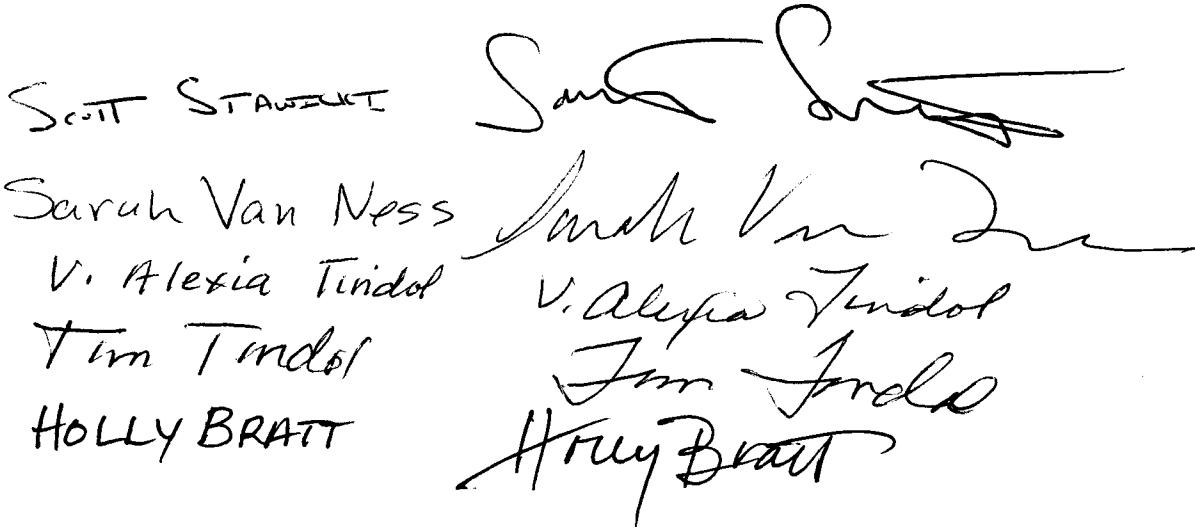 Scott Stawicki
Sarah Van Ness Sarah Van
V. Alexia Tindol V. Alexia Tindol
Tim Tindol Tim Tindol
HOLLY BRATT Holly Bratt